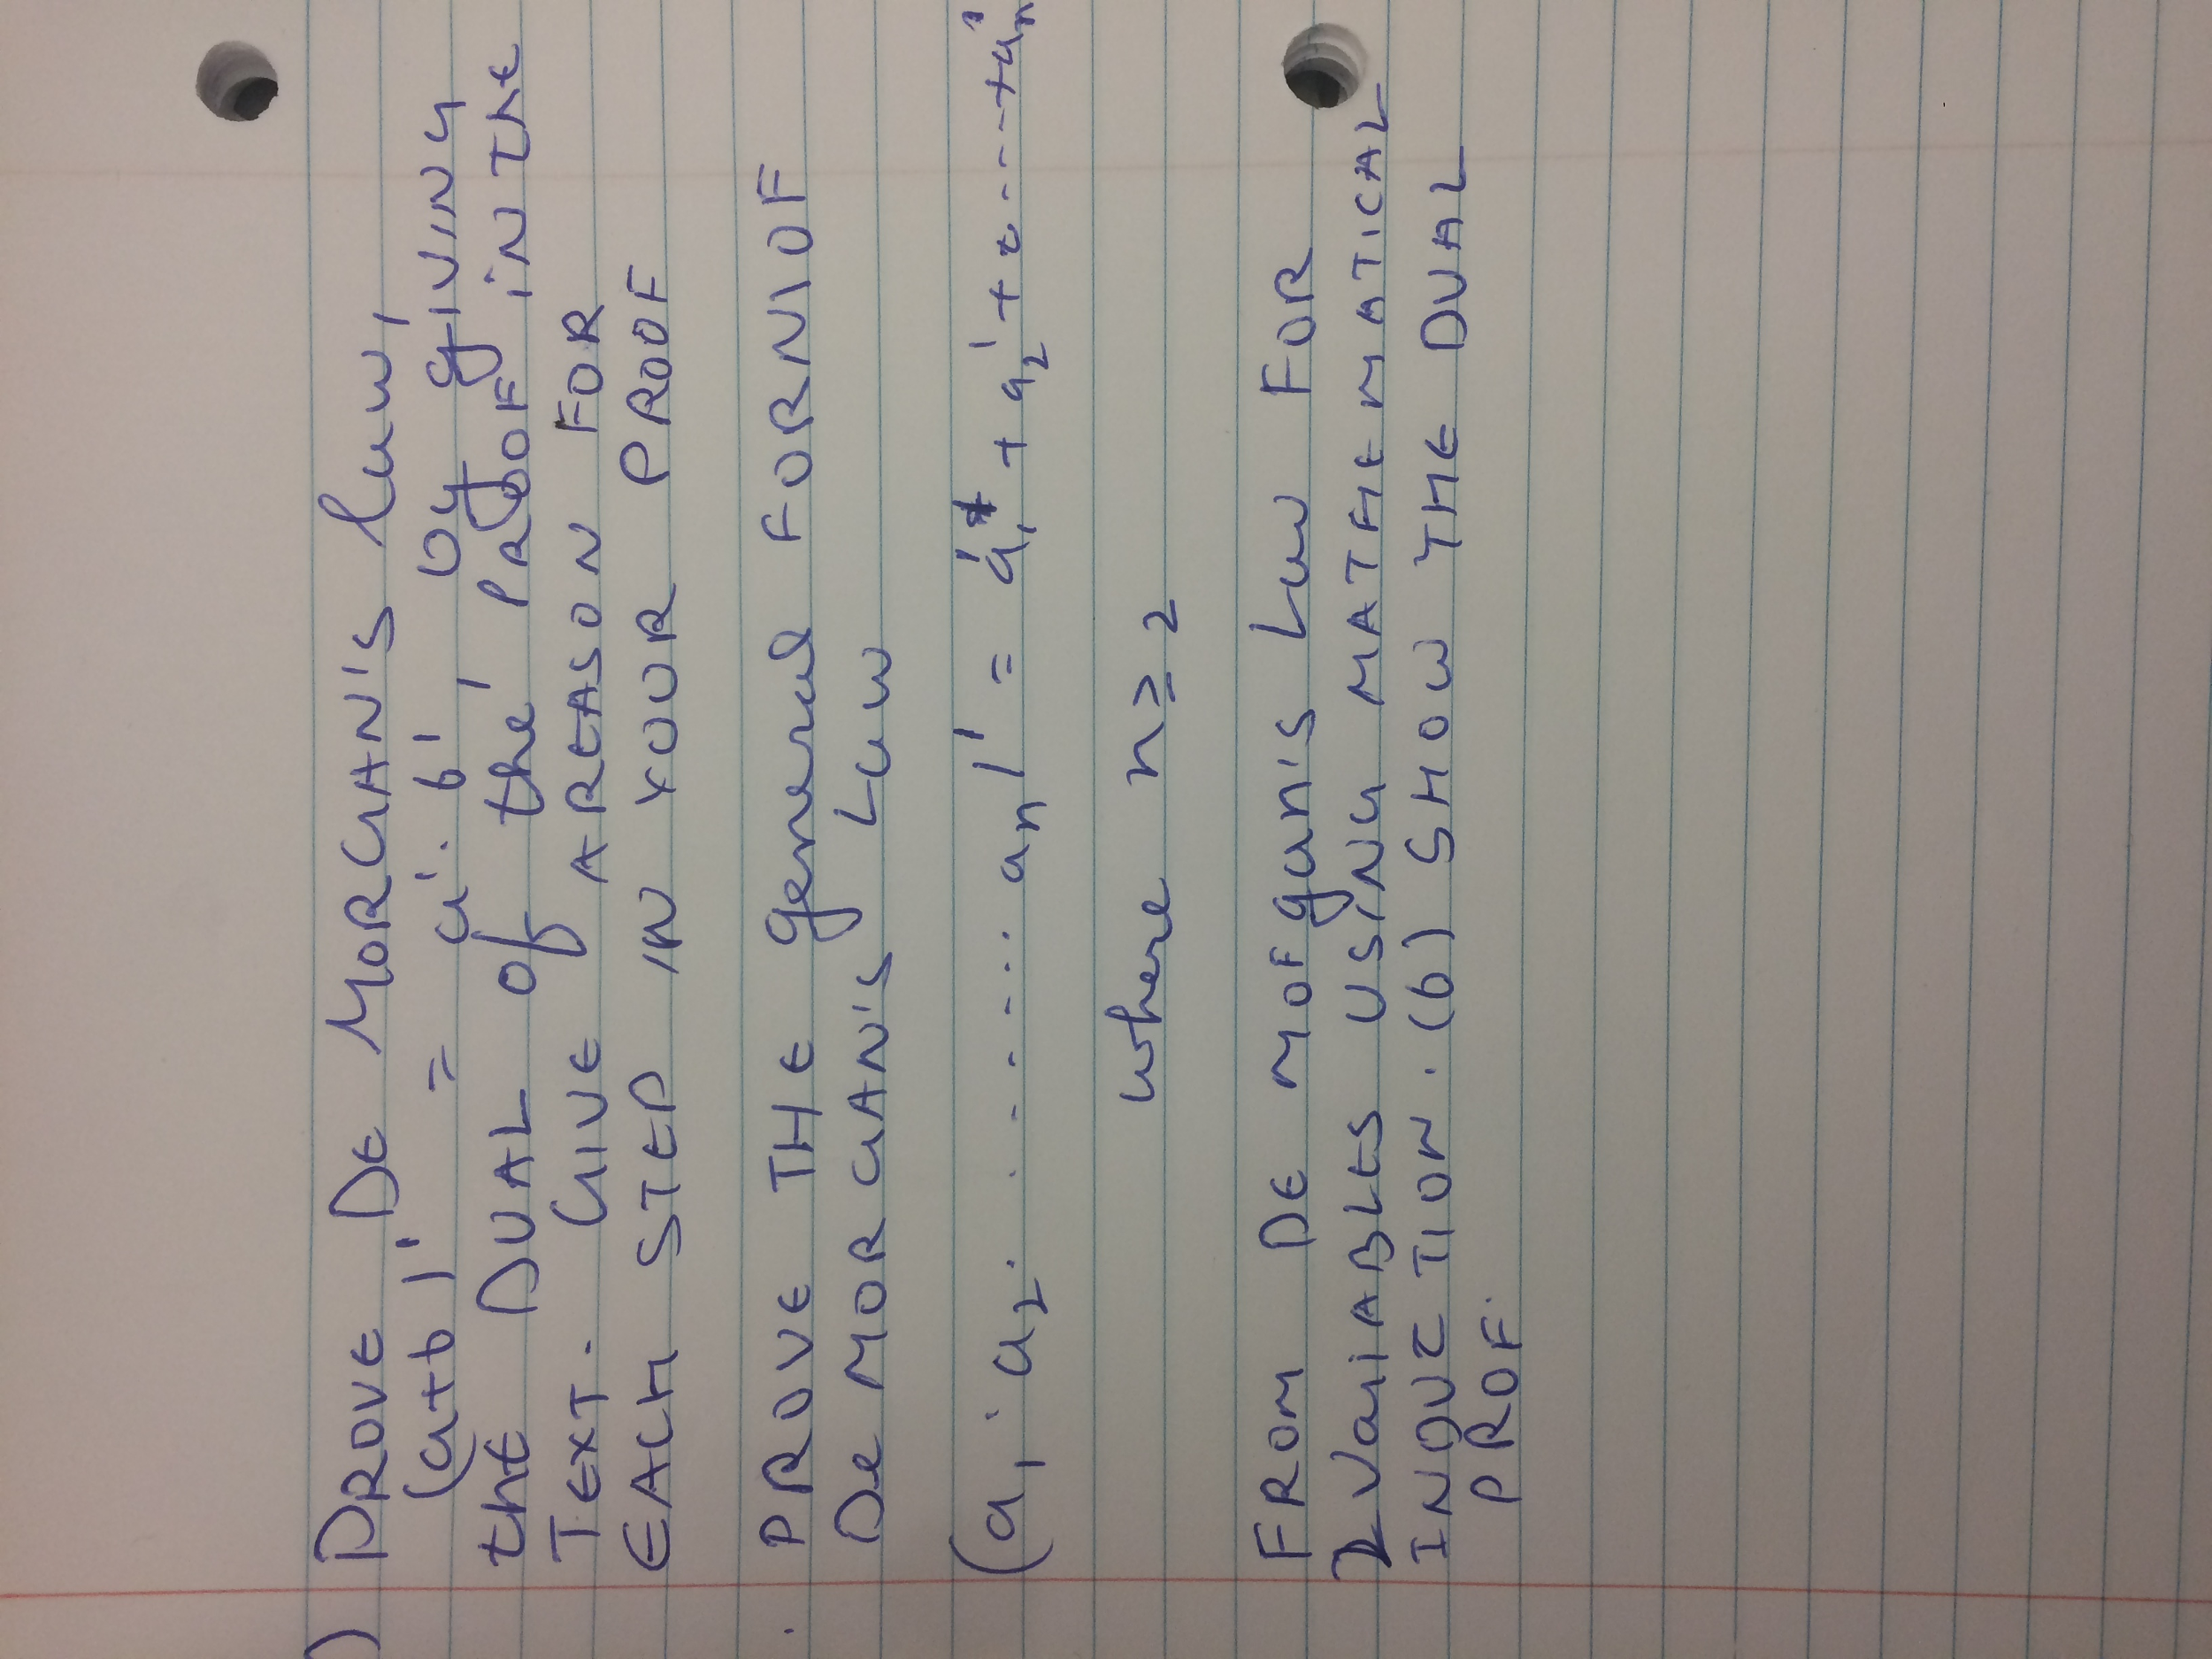 ) PROVE DE MORGAN'S law,
(a+b)' = a'. b' by giving
the DUAL of the PROOF in the
TEXT. GIVE A REASON FOR
EACH STEP IN YOUR PROOF
. PROVE THE general FORM OF
De MORGAN'S Law
(a1 . a2 . . . . . . . . an)' = a1' + a2' + . . . . + an'
where n ≥ 2
FROM DE Morgan's Law FOR
2 VariABLES USING MATHEMATICAL
INDUCTION. (b) SHOW THE DUAL
PROF.